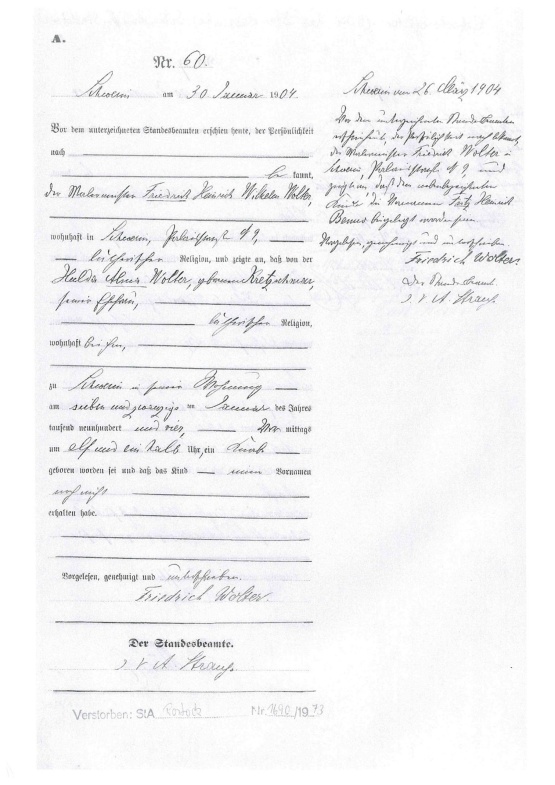 A.
Nr. 60.
Schwerin am 30 Januar 1904
Vor dem unterzeichneten Standesbeamten erschien heute, der Persönlichkeit
nach
be kannt,
der Malermeister Friedrich Heinrich Wilhelm Wolter,
wohnhaft in Schwerin, 9,
lutherischer Religion, und zeigte an, daß von der
Hulda Wolter, geborenen Kretzschmar,
seiner Ehefrau,
lutherischer Religion,
wohnhaft bei ihm,
zu Schwerin in seiner Wohnung
am sieben und zwanzigsten Januar des Jahres
tausend neunhundert und vier, Vor mittags
um elf und ein halb Uhr, ein Knabe
geboren worden sei und daß das Kind einen Vornamen
noch nicht
erhalten habe.
Vorgelesen, genehmigt und unterschrieben.
Friedrich Wolter.
Der Standesbeamte.
J. V. A. Strauß.
Verstorben: StA Rostock Nr. 1690/1973
Schwerin am 26 März 1904
Vor dem unterzeichneten Standesbeamten
erscheint, der Persönlichkeit nach bekannt,
der Malermeister Friedrich Wolter in
Schwerin, 9, und
zeigt an, daß dem nebenbezeichneten
Kinde die Vornamen Fritz Heinrich
Benno beigelegt worden seien.
Vorgelesen, genehmigt und unterschrieben
Friedrich Wolter.
Der Standesbeamte.
J. V. A. Strauß.